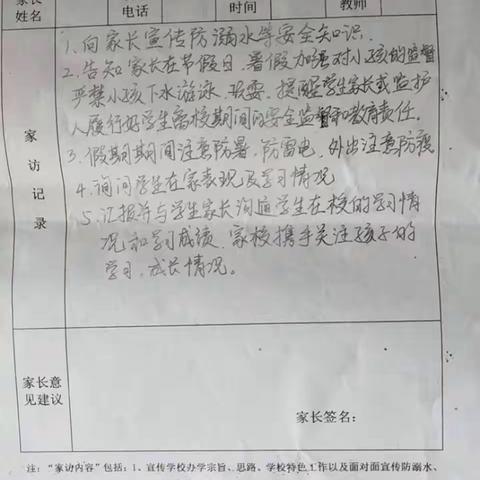 家长 电话 时间 教师
姓名
家访记录
1.向家长宣传防溺水等安全知识.
2.告知家长在节假日、暑假加强对小孩的监督
严禁小孩下水游泳、玩耍、提醒学生家长或监护
人履行好学生离校期间的安全监督和教育责任.
3.假期期间注意防暑、防雷电、外出注意防疫
4.询问学生在家表现及学习情况
5.汇报并与学生家长沟通学生在校的学习情
况和学习成绩、家校携手关注孩子的
学习、成长情况。
家长意
见建议
家长签名:
注:"家访内容"包括:1、宣传学校办学宗旨、思路、学校特色工作以及面对面宣传防溺水、